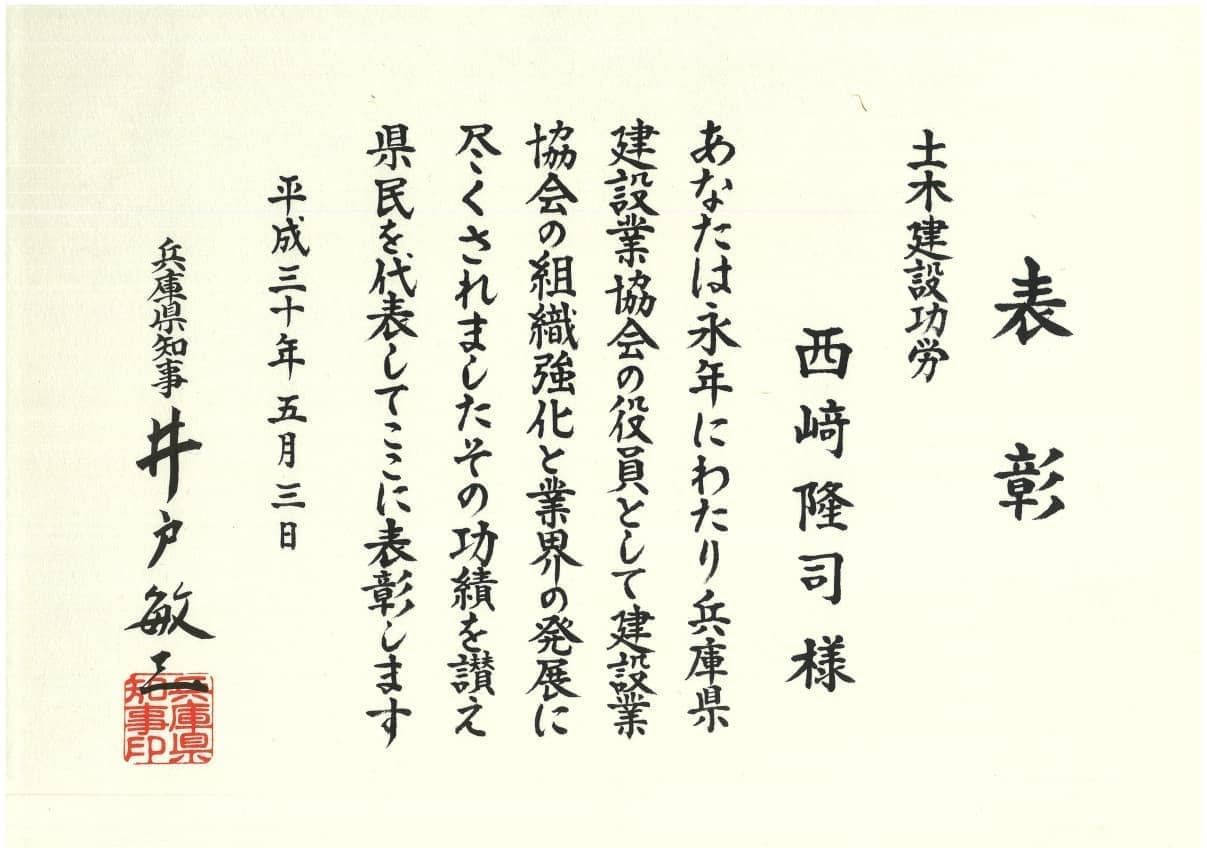 表彰
土木建設功労
西﨑隆司様
あなたは永年にわたり兵庫県
建設業協会の役員として建設業
協会の組織強化と業界の発展に
尽くされましたその功績を讃え
県民を代表してここに表彰します
平成三十年五月三日
兵庫県知事 井戸敏三
兵庫県
知事印